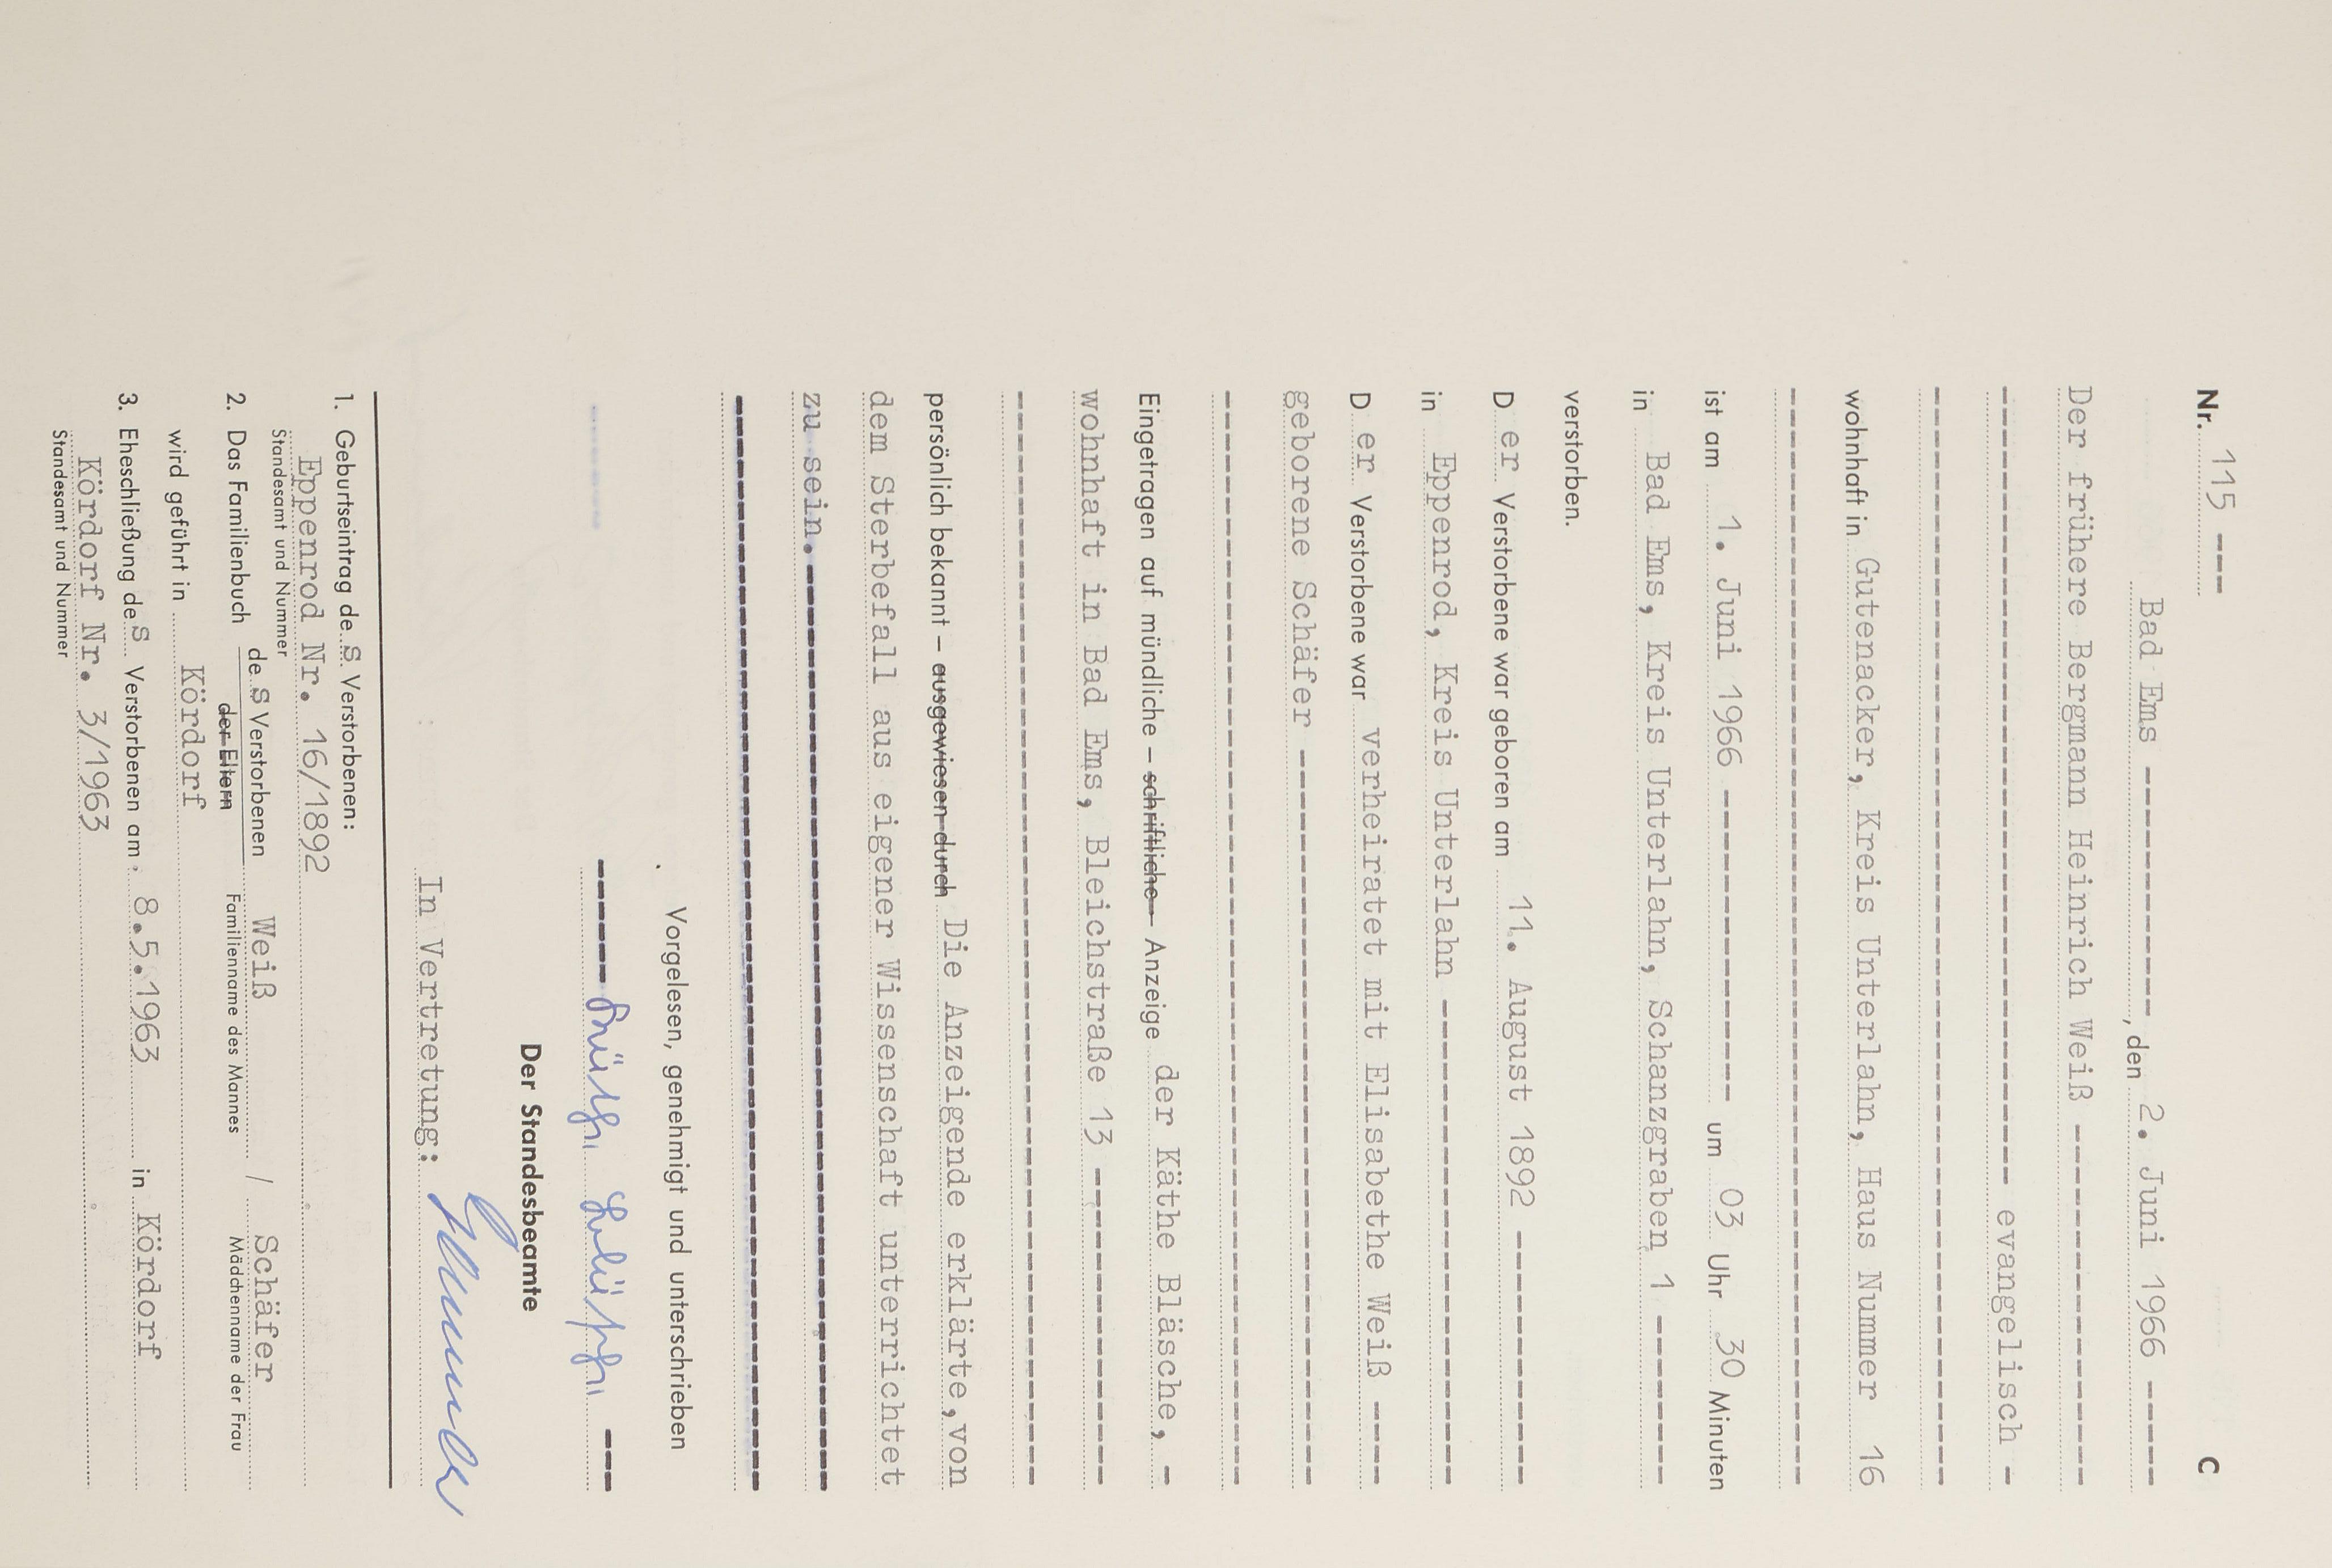 Nr. 115 ---
C
Bad Ems -------------, den 2. Juni 1966 -----
Der frühere Bergmann Heinrich Weiß -----------------
------------------------------------- evangelisch -
wohnhaft in Gutenacker, Kreis Unterlahn, Haus Nummer 16
ist am 1. Juni 1966 --------------- um 03 Uhr 30 Minuten
in Bad Ems, Kreis Unterlahn, Schanzgraben 1 --------
verstorben.
D er Verstorbene war geboren am 11. August 1892 ------------
in Eppenrod, Kreis Unterlahn -----------------------
D er Verstorbene war verheiratet mit Elisabethe Weiß ----
geborene Schäfer -----------------------------------
Eingetragen auf mündliche – schriftliche – Anzeige der Käthe Bläsche, -
wohnhaft in Bad Ems, Bleichstraße 13 ---------------
persönlich bekannt – ausgewiesen durch Die Anzeigende erklärte,von
dem Sterbefall aus eigener Wissenschaft unterrichtet
zu sein.--------------------------------------------
Vorgelesen, genehmigt und unterschrieben
Der Standesbeamte
In Vertretung:
1. Geburtseintrag de s Verstorbenen:
Eppenrod Nr. 16/1892
Standesamt und Nummer
2. Das Familienbuch de s Verstorbenen Weiß / Schäfer
der Eltern Familienname des Mannes Mädchenname der Frau
wird geführt in Kördorf
3. Eheschließung de s Verstorbenen am 8.5.1963 in Kördorf
Kördorf Nr. 3/1963
Standesamt und Nummer